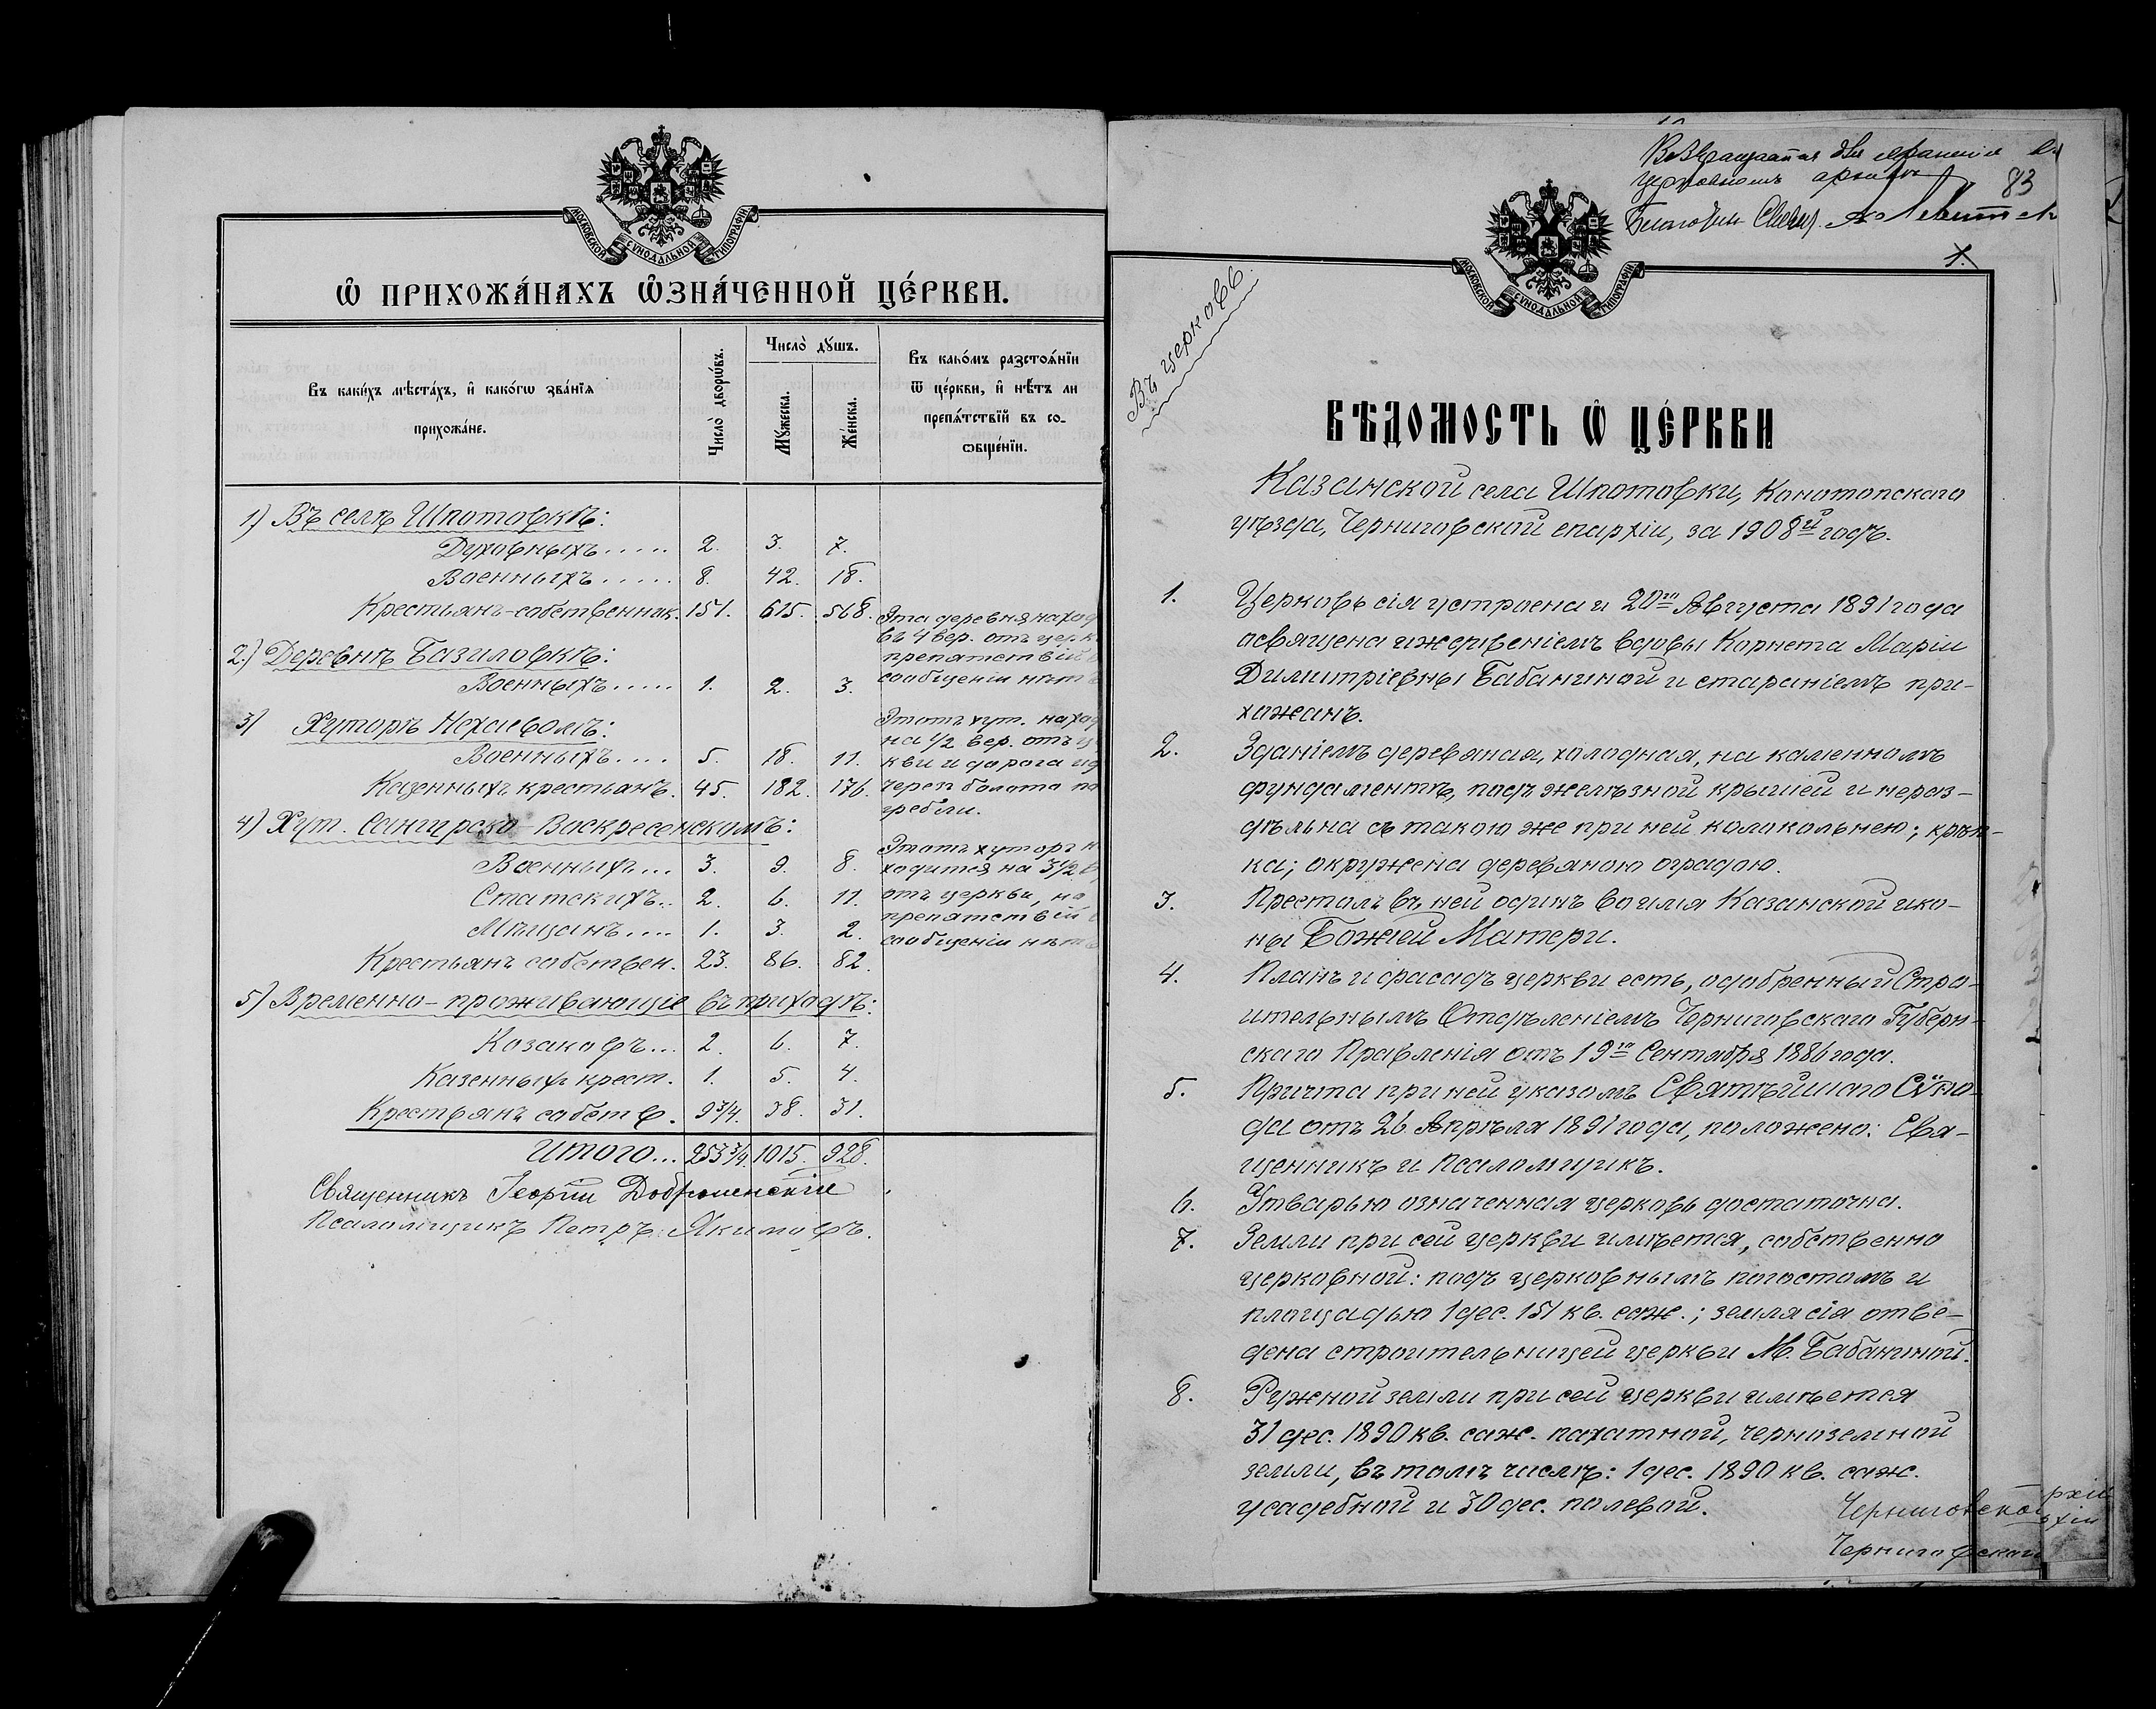 МОСКОВСКОЙ СѴНОДАЛЬНОЙ ТИПОГРАФІИ
Ѿ ПРИХОЖА́НАХЪ Ѡ҆ЗНА́ЧЕННОЙ ЦЕ́РКВИ.
Въ каки́хъ мѣста́хъ, и҆ како́гѡ зва́нїѧ
прихожа́не.
Число̀ дворѡ́въ.
Число̀ дꙋ́шъ.
Мꙋ́жеска.
Же́нска.
Въ како́мъ разстоѧ́нїи
ѿ це́ркви, и҆ нѣ́тъ ли
препѧ́тствїй въ со-
ѡбще́нїи.
1) Въ селѣ Шпотовкѣ:
Духовныхъ..... 2. 3. 7.
Военныхъ..... 8. 42. 18.
Крестьянъ-собственник. 151. 615. 568.
Эта деревня наход
въ 4 вер. отъ церк
препятствій
сообщеніи нѣтъ
2.) Деревнѣ Базиловкѣ:
Военныхъ..... 1. 2. 3.
3) Хуторѣ Нехаевомъ:
Военныхъ.... 5. 18. 11.
Казенныхъ крестьянъ. 45. 182. 176.
Этотъ хут. наход
на 1/2 вер. отъ ц
кви и дорога ид
черезъ болота по
гребли.
4) Хут. Сангурско-Воскресенскомъ:
Военныхъ... 3. 9. 8.
Статскихъ.. 2. 6. 11.
Мѣщанъ.... 1. 3. 2.
Крестьянъ собствен. 23. 86. 82.
Этотъ хуторъ н
ходится на 3 1/2 в
отъ церкви, но
препятствій
сообщеніи нѣтъ
5) Временно-проживающіе въ приходѣ:
Козаковъ... 2. 6. 7.
Казенныхъ крест. 1. 5. 4.
Крестьянъ собств. 9 3/4. 38. 31.
Итого... 253 3/4. 1015. 928.
Священникъ Георгій
Псаломщикъ Петръ Якимовъ.
Возвращается для храненія въ
церковномъ архивѣ
83
1.
МОСКОВСКОЙ СѴНОДАЛЬНОЙ ТИПОГРАФІИ
Въ церковь.
ВѢДОМОСТЬ Ѡ҆ ЦЕ́РКВИ
Казанской села Шпотовки, Конотопскаго
уѣзда, Черниговской епархіи, за 1908й годъ.
1. Церковь сія устроена и 20го Августа 1891 года
освящена иждивеніемъ вдовы Корнета Маріи
Димитріевны Бабаниной и стараніемъ при-
хожанъ.
2. Зданіемъ деревяная, холодная, на каменномъ
фундаментѣ, подъ желѣзной крышей и нераз-
дѣльна съ такою же при ней колокольнею; крѣп-
ка; окружена деревяною оградою.
3. Престолъ въ ней одинъ во имя Казанской ико-
ны Божіей Матери.
4. Планъ и фасадъ церкви есть, одобренный Стро-
ительнымъ Отдѣленіемъ Черниговскаго Губерн-
скаго Правленія отъ 19го Сентября 1886 года.
5. Причта при ней указомъ Святѣйшаго Сѵно-
да отъ 26 Апрѣля 1891 года, положено: Свя-
щенникъ и Псаломщикъ.
6. Утварью означенная церковь достаточна.
7. Земли при сей церкви имѣется, собственно
церковной: подъ церковнымъ погостомъ и
площадью 1 дес. 151 кв. саж.; земля сія отве-
дена строительницей церкви М. Бабаниной.
8. Ружной земли при сей церкви имѣется
31 дес. 1890 кв. саж. пахатной, черноземной
земли, въ томъ числѣ: 1 дес. 1890 кв. саж.
усадебной и 30 дес. полевой.
Черниговской
Черниговской
рхіи
рхіи